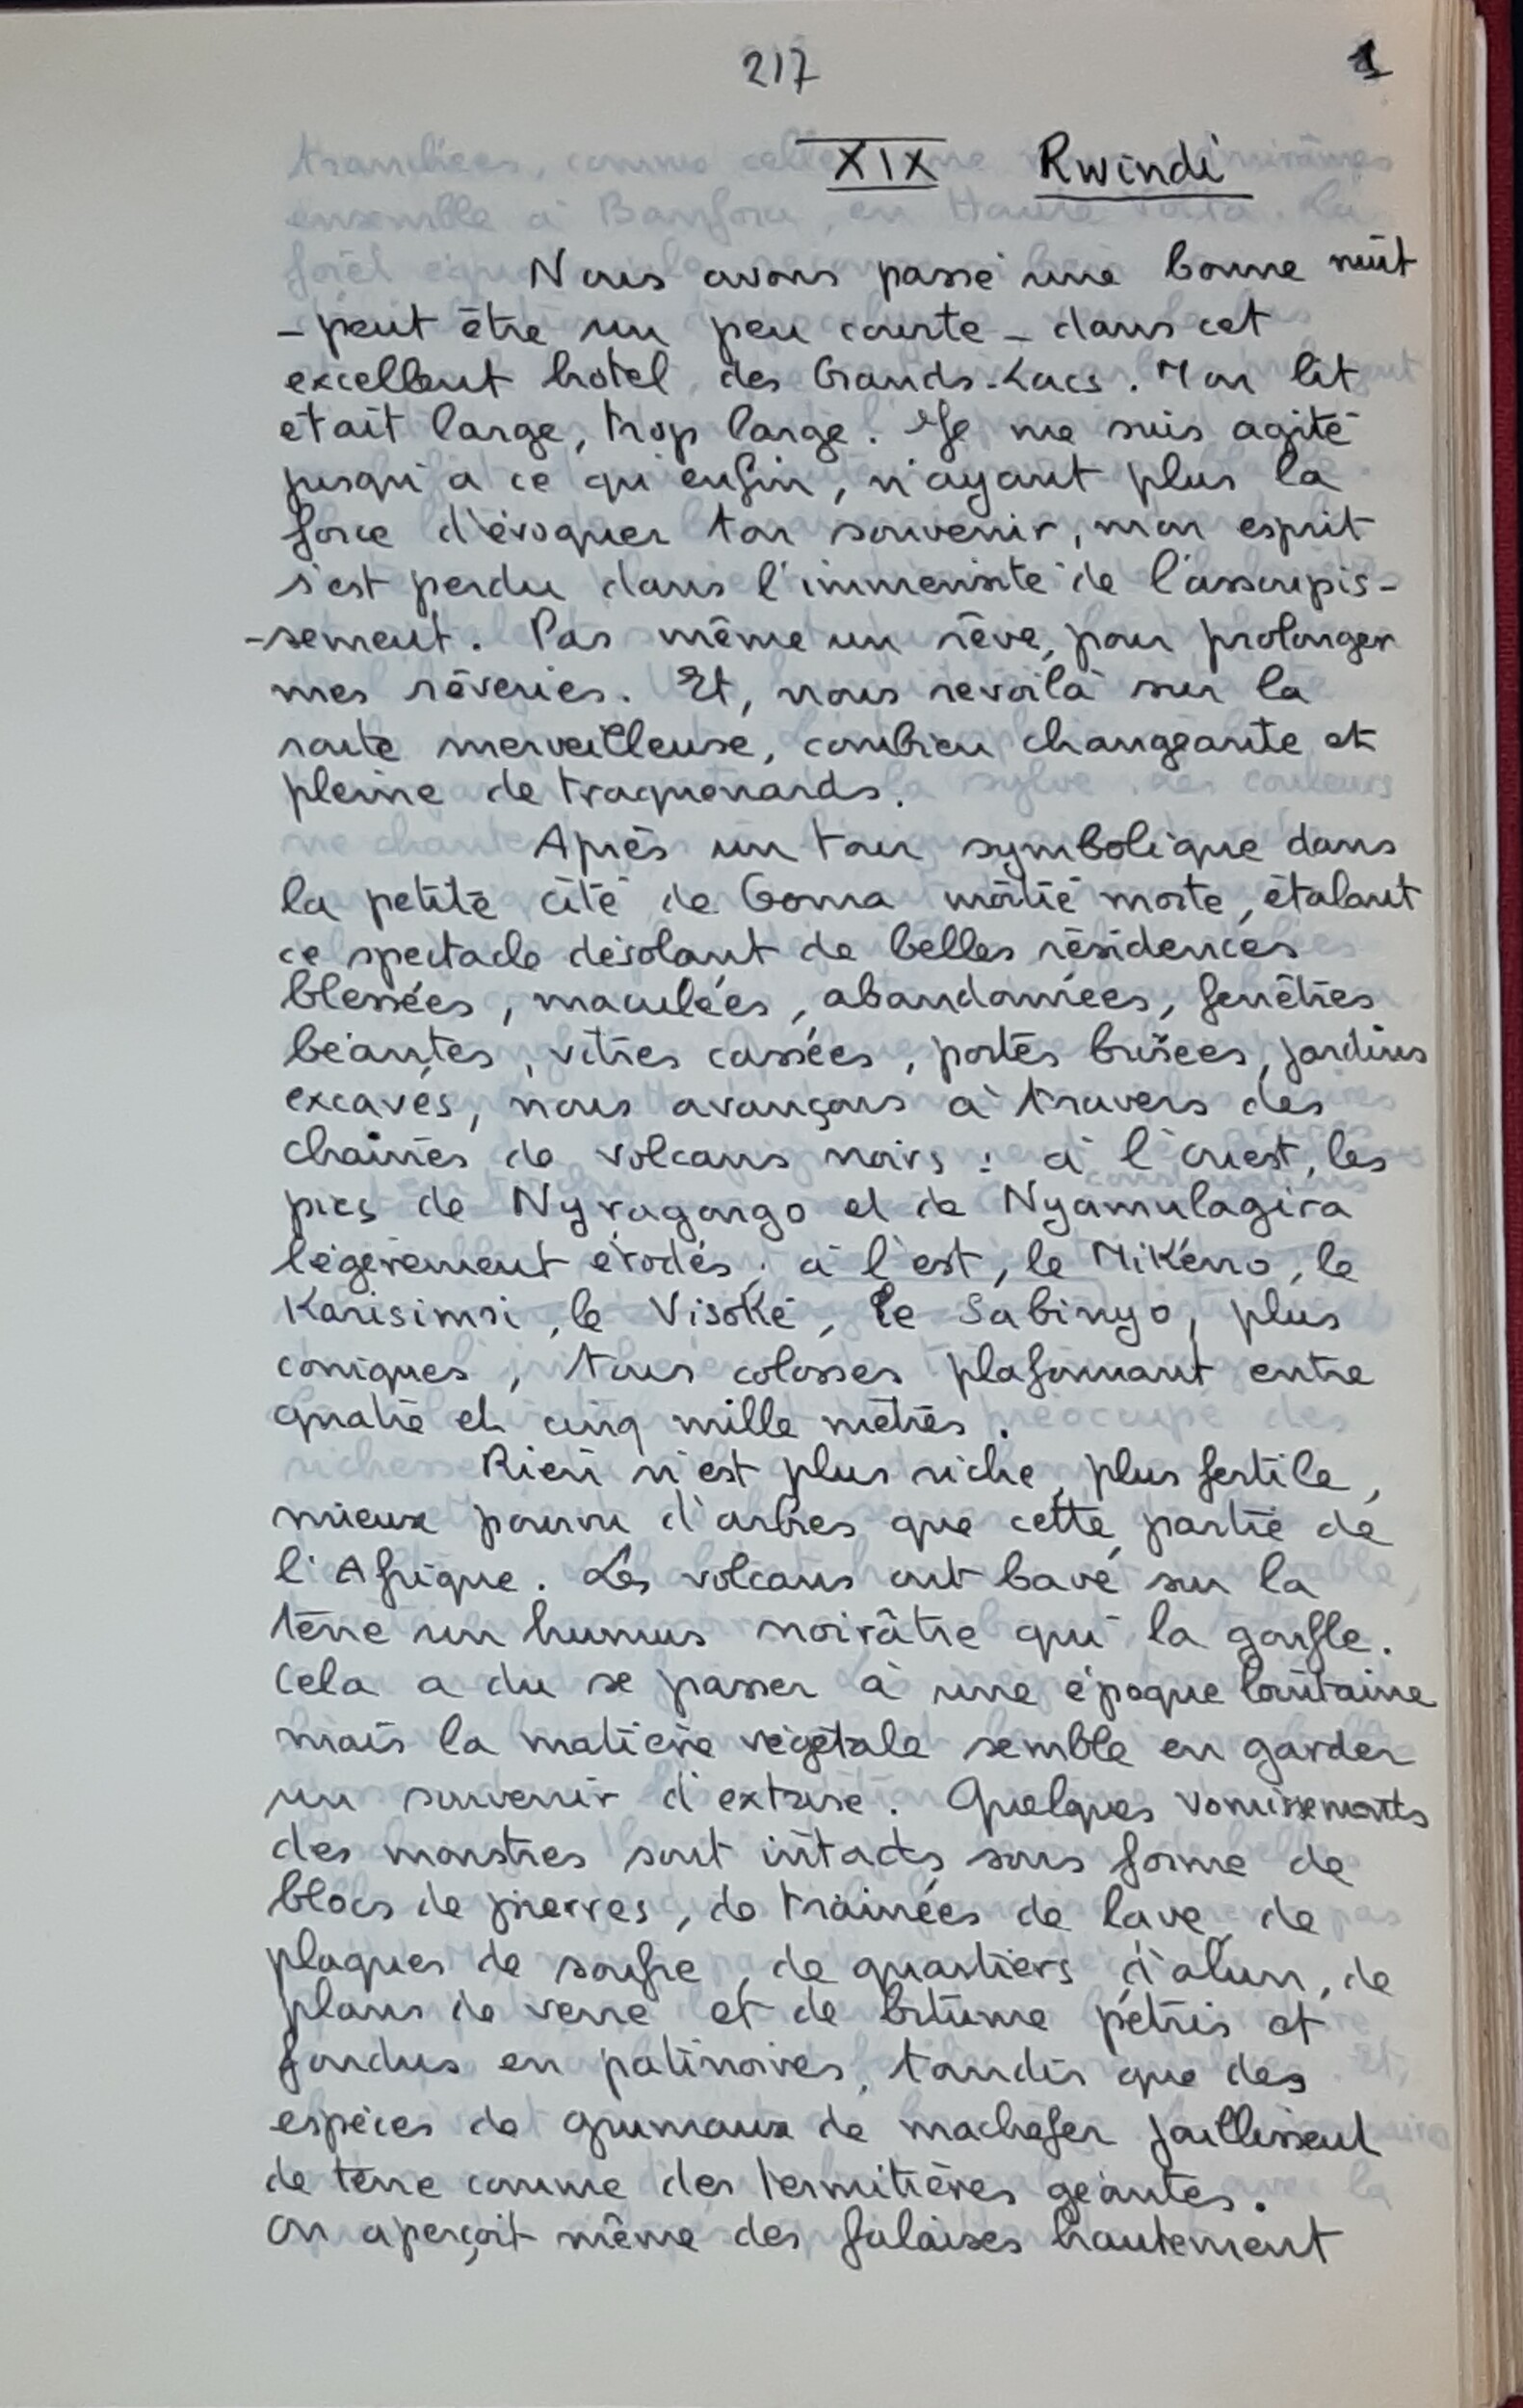 217
1
XIX Rwindi
Nous avons passé une bonne nuit
- peut être un peu courte - dans cet
excellent hotel des Grands-Lacs. Mon lit
était large, trop large. Je me suis agité
jusqu'à ce qu'enfin, n'ayant plus la
force d'évoquer ton souvenir, mon esprit
s'est perdu dans l'immensité de l'assoupis-
-sement. Pas même un rêve, pour prolonger
mes rêveries. Et, nous revoilà sur la
route merveilleuse, combien changeante et
pleine de traquenards.
Après un tour symbolique dans
la petite cité de Goma moitié morte, étalant
ce spectacle désolant de belles résidences
blessées, maculées, abandonnées, fenêtres
béantes, vitres cassées, portes brisées, jardins
excavés, nous avançons à travers des
chaines de volcans noirs : à l'ouest, les
pics de Nyragongo et de Nyamulagira
légèrement érodés ; à l'est, le Mikéno, le
Karisimsi, le Visoké, le Sabinyo, plus
coniques, tous colosses plafonnant entre
quatre et cinq mille mètres.
Rien n'est plus riche, plus fertile,
mieux pourvu d'arbres que cette partie de
l'Afrique. Les volcans ont bavé sur la
terre un humus noirâtre qui la gonfle.
Cela a du se passer à une époque lointaine
mais la matière végétale semble en garder
un souvenir d'extase. Quelques vomissements
des monstres sont intacts sous forme de
blocs de pierres, de trainées de lave, de
plaques de soufre, de quartiers d'alun, de
plans de verre et de bitume pétris et
fondus en patinoires, tandis que des
espèces de grumaux de machefer jaillissent
de terre comme des termitières géantes.
On aperçoit même des falaises hautement